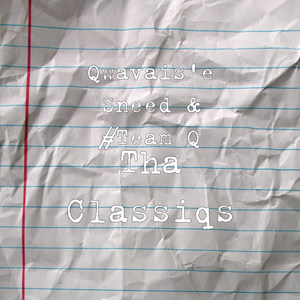 Qwavais'e
Sneed &
#Team Q
Tha
Classiqs